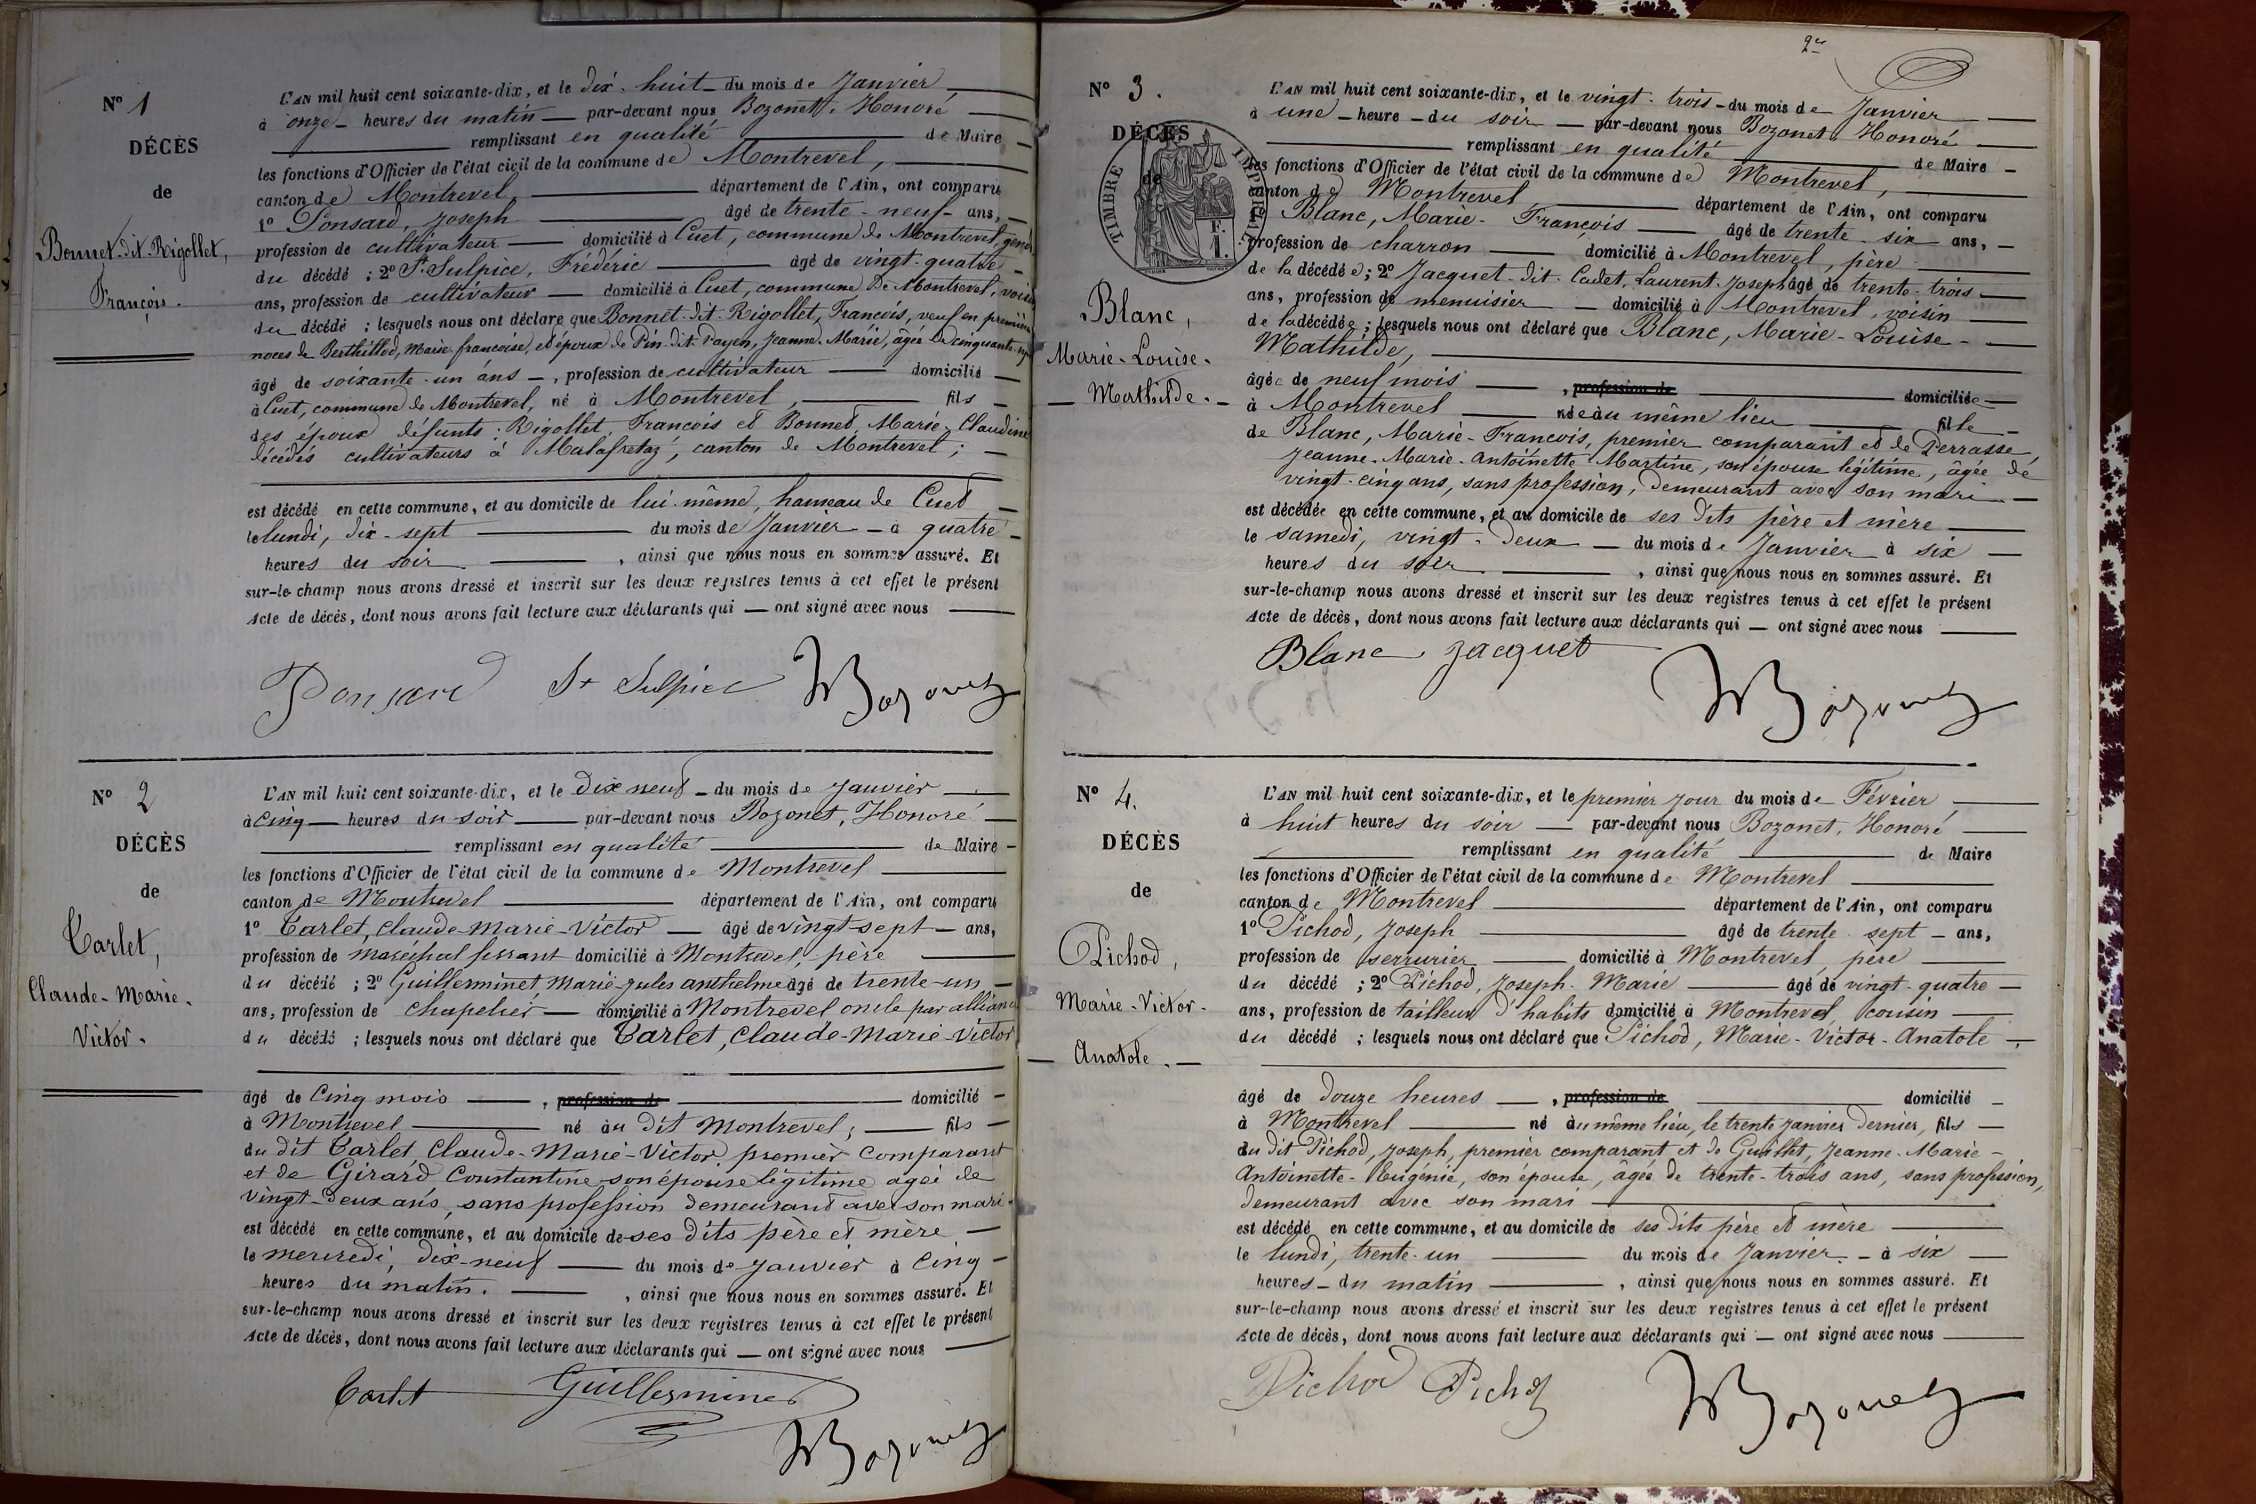 N° 1
DÉCÈS
de
Bonnet-dit-Rigollet,
François.
L'AN mil huit cent soixante-dix, et le dix-huit du mois de Janvier
à onze heures du matin par-devant nous Bozonet, Honoré
remplissant en qualité de Maire
les fonctions d'Officier de l'état civil de la commune de Montrevel,
canton de Montrevel, département de l'Ain, ont comparu
1° Ponsard, Joseph âgé de trente-neuf ans,
profession de cultivateur domicilié à Cuet, commune de Montrevel,
du décédé ; 2° St Sulpice, Frédéric âgé de vingt-quatre
ans, profession de cultivateur domicilié à Cuet, commune De Montrevel, voisin
du décédé ; lesquels nous ont déclaré que Bonnet-dit-Rigollet, François, veuf en première
noces de Berthillod, Marie françoise, et époux de Pin-dit-Payen, Jeanne-Marie, âgée De cinquante
âgé de soixante-un ans, profession de cultivateur domicilié
à Cuet, commune de Montrevel, né à Montrevel, fils
des époux défunts : Rigollet, François et Bonnet, Marie-Claudine
décédés cultivateurs à Malafretaz, canton de Montrevel ;
est décédé en cette commune, et au domicile de lui-même, hameau de Cuet
le lundi, dix-sept du mois de Janvier à quatre
heures du soir, ainsi que nous nous en sommes assuré. Et
sur-le-champ nous avons dressé et inscrit sur les deux registres tenus à cet effet le présent
Acte de décès, dont nous avons fait lecture aux déclarants qui — ont signé avec nous
Ponsard St Sulpice Bozonet
N° 2
DÉCÈS
de
Carlet,
Claude-Marie-
Victor.
L'AN mil huit cent soixante-dix, et le dix neuf du mois de Janvier
à Cinq heures du soir par-devant nous Bozonet, Honoré
remplissant en qualité de Maire
les fonctions d'Officier de l'état civil de la commune de Montrevel
canton de Montrevel département de l'Ain, ont comparu
1° Carlet, Claude-Marie-Victor âgé de vingt-sept ans,
profession de maréchal ferrant domicilié à Montrevel, père
du décédé ; 2° Guillerminet, Marie-Jules anthelme âgé de trente-un
ans, profession de chapelier domicilié à Montrevel oncle par alliance
du décédé ; lesquels nous ont déclaré que Carlet, Claude-Marie-Victor
âgé de Cinq mois, profession de domicilié
à Montrevel né au dit Montrevel, fils
du dit Carlet Claude-Marie-Victor premier Comparant
et de Girard Constantine son épouse légitime agée de
vingt-deux ans, sans profession demeurant avec son mari
est décédé en cette commune, et au domicile de ses dits père et mère
le mercredi, dix-neuf du mois de Janvier à Cinq
heures du matin., ainsi que nous nous en sommes assuré. Et
sur-le-champ nous avons dressé et inscrit sur les deux registres tenus à cet effet le présent
Acte de décès, dont nous avons fait lecture aux déclarants qui — ont signé avec nous
Carlet Guillerminet
Bozonet
2e
N° 3.
DÉCÈS
de
TIMBRE IMPÉRIAL
Blanc,
Marie-Louise-
Mathilde.
L'AN mil huit cent soixante-dix, et le vingt-trois du mois de Janvier
à une heure du soir par-devant nous Bozonet Honoré
remplissant en qualité de Maire
les fonctions d'Officier de l'état civil de la commune de Montrevel,
canton de Montrevel département de l'Ain, ont comparu
1° Blanc, Marie-François âgé de trente-six ans,
profession de charron domicilié à Montrevel, père
de la décédée ; 2° Jacquet-dit-Cadet, Laurent-Joseph âgé de trente-trois
ans, profession de menuisier domicilié à Montrevel, voisin
de la décédée ; lesquels nous ont déclaré que Blanc, Marie-Louise-
Mathilde,
âgée de neuf mois, profession de domiciliée
à Montrevel née au même lieu fille
de Blanc, Marie-François, premier comparant et de Perrasse,
Jeanne-Marie-Antoinette-Martine, son épouse légitime, âgée de
vingt-cinq ans, sans profession, demeurant avec son mari
est décédée en cette commune, et au domicile de ses dits père et mère
le samedi, vingt-deux du mois de Janvier à six
heures du soir, ainsi que nous nous en sommes assuré. Et
sur-le-champ nous avons dressé et inscrit sur les deux registres tenus à cet effet le présent
Acte de décès, dont nous avons fait lecture aux déclarants qui — ont signé avec nous
Blanc Jacquet
Bozonet
N° 4.
DÉCÈS
de
Pichod,
Marie-Victor-
Anatole.
L'AN mil huit cent soixante-dix, et le premier jour du mois de Février
à huit heures du soir par-devant nous Bozonet, Honoré
remplissant en qualité de Maire
les fonctions d'Officier de l'état civil de la commune de Montrevel
canton de Montrevel département de l'Ain, ont comparu
1° Pichod, Joseph âgé de trente-sept ans,
profession de serrurier domicilié à Montrevel, père
du décédé ; 2° Pichod, Joseph-Marie âgé de vingt-quatre
ans, profession de tailleur d'habits domicilié à Montrevel, cousin
du décédé ; lesquels nous ont déclaré que Pichod, Marie-Victor-Anatole,
âgé de douze heures, profession de domicilié
à Montrevel né au même lieu, le trente janvier dernier, fils
du dit Pichod, Joseph, premier comparant et de Guillet, Jeanne-Marie-
Antoinette-Eugénie, son épouse, âgée de trente-trois ans, sans profession,
demeurant avec son mari
est décédé en cette commune, et au domicile de ses dits père et mère
le lundi, trente-un du mois de Janvier à six
heures du matin, ainsi que nous nous en sommes assuré. Et
sur-le-champ nous avons dressé et inscrit sur les deux registres tenus à cet effet le présent
Acte de décès, dont nous avons fait lecture aux déclarants qui — ont signé avec nous
Pichod Pichod
Bozonet